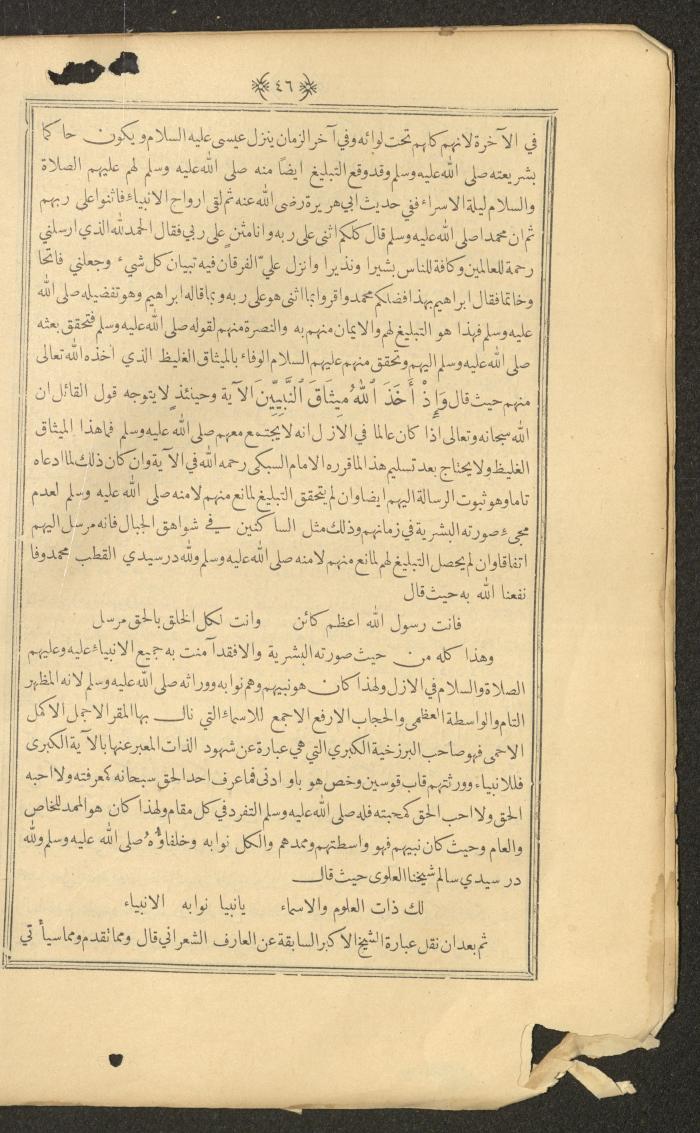 ٤٦
في الآخرة لانهم كلهم تحت لوائه وفي آخر الزمان ينزل عيسى عليه السلام ويكون حاكما
بشريعته صلى الله عليه وسلم وقد وقع التبليغ ايضاً منه صلى الله عليه وسلم لهم عليهم الصلاة
والسلام ليلة الاسراء ففي حديث ابي هريرة رضى الله عنه ثم لقى ارواح الانبياء فاثنوا على ربهم
ثم ان محمدا صلى الله عليه وسلم قال كلكم اثنى على ربه وانا مثن على ربي فقال الحمد لله الذي ارسلني
رحمة للعالمين وكافة للناس بشيرا ونذيرا وانزل عليّ الفرقان فيه تبيان كل شيء وجعلني فاتحا
وخاتما فقال ابراهيم بهذا فضلكم محمد واقروا بما اثنى هو على ربه وبما قاله ابراهيم وهو تفضيله صلى الله
عليه وسلم فهذا هو التبليغ لهم والايمان منهم به والنصرة منهم لقوله صلى الله عليه وسلم فتحقق بعثه
صلى الله عليه وسلم اليهم وتحقق منهم عليهم السلام الوفاء بالميثاق الغليظ الذي اخذه الله تعالى
منهم حيث قال وَإِذْ أَخَذَ ٱللهُ مِيثَاقَ ٱلنَّبِيِّينَ الآية وحينئذٍ لا يتوجه قول القائل ان
الله سبحانه وتعالى اذا كان عالما في الازل انه لا يجتمع معهم صلى الله عليه وسلم فما هذا الميثاق
الغليظ ولا يحتاج بعد تسليم هذا لما قرره الامام السبكى رحمه الله في الآية وان كان ذلك لما ادعاه
تاما وهو ثبوت الرسالة اليهم ايضا وان لم يتحقق التبليغ لمانع منهم لا منه صلى الله عليه وسلم لعدم
مجيء صورته البشرية في زمانهم وذلك مثل الساكنين في شواهق الجبال فانه مرسل اليهم
اتفاقا وان لم يحصل التبليغ لهم لمانع منهم لا منه صلى الله عليه وسلم ولله در سيدي القطب محمد وفا
نفعنا الله به حيث قال
فانت رسول الله اعظم كائن وانت لكل الخلق بالحق مرسل
وهذا كله من حيث صورته البشرية والا فقد آمنت به جميع الانبياء عليه وعليهم
الصلاة والسلام في الازل ولهذا كان هو نبيهم وهم نوابه ووراثه صلى الله عليه وسلم لانه المظهر
التام والواسطة العظمى والحجاب الارفع الاجمع للاسماء التي نال بها المقر الاجمل الاكمل
الاحمى فهو صاحب البرزخية الكبري التي هي عبارة عن شهود الذات المعبر عنها بالآية الكبرى
فللانبياء وورثتهم قاب قوسين وخص هو باو ادنى فما عرف احد الحق سبحانه كمعرفته ولا احبه
الحق ولا احب الحق كمحبته فله صلى الله عليه وسلم التفرد في كل مقام ولهذا كان هو الممد للخاص
والعام وحيث كان نبيهم فهو واسطتهم وممدهم والكل نوابه وخلفاؤه صلى الله عليه وسلم ولله
در سيدي سالم شيخنا العلوى حيث قال
لك ذات العلوم والاسماء يا نبيا نوابه الانبياء
ثم بعد ان نقل عبارة الشيخ الاكبر السابقة عن العارف الشعراني قال ومما تقدم ومما سيأتي